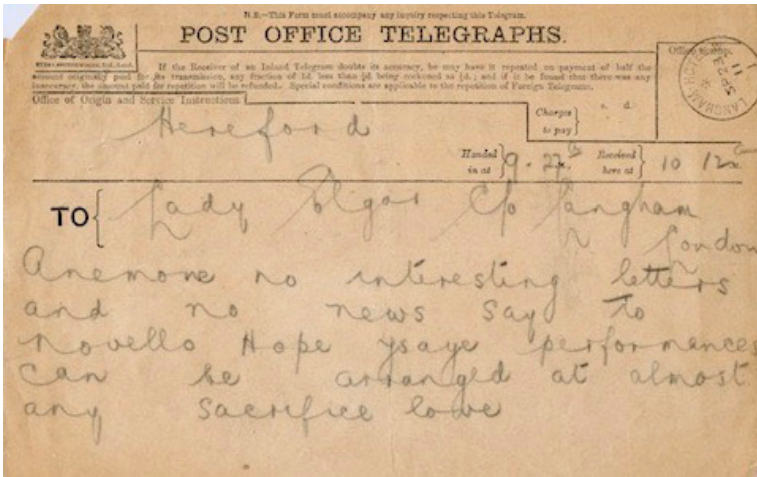 N.B.—This Form must accompany any inquiry respecting this Telegram.
POST OFFICE TELEGRAPHS.
If the Receiver of an Inland Telegram doubts its accuracy, he may have it repeated on payment of half the
amount originally paid for its transmission, any fraction of 1d. less than ½d. being reckoned as ½d.; and if it be found that there was any
inaccuracy, the amount paid for repetition will be refunded. Special conditions are applicable to the repetition of Foreign Telegrams.
Office of Origin and Service Instructions
Charges
to pay
s. d.
LANGHAM HOTEL
SP 2
11
Hereford
Handed
in at
9.27
Received
here at
10 12
TO
Lady Elgar C/o Langham
London
Anemone no interesting letters
and no news say to
novello Hope ysaye performances
can be arranged at almost
any sacrifice love